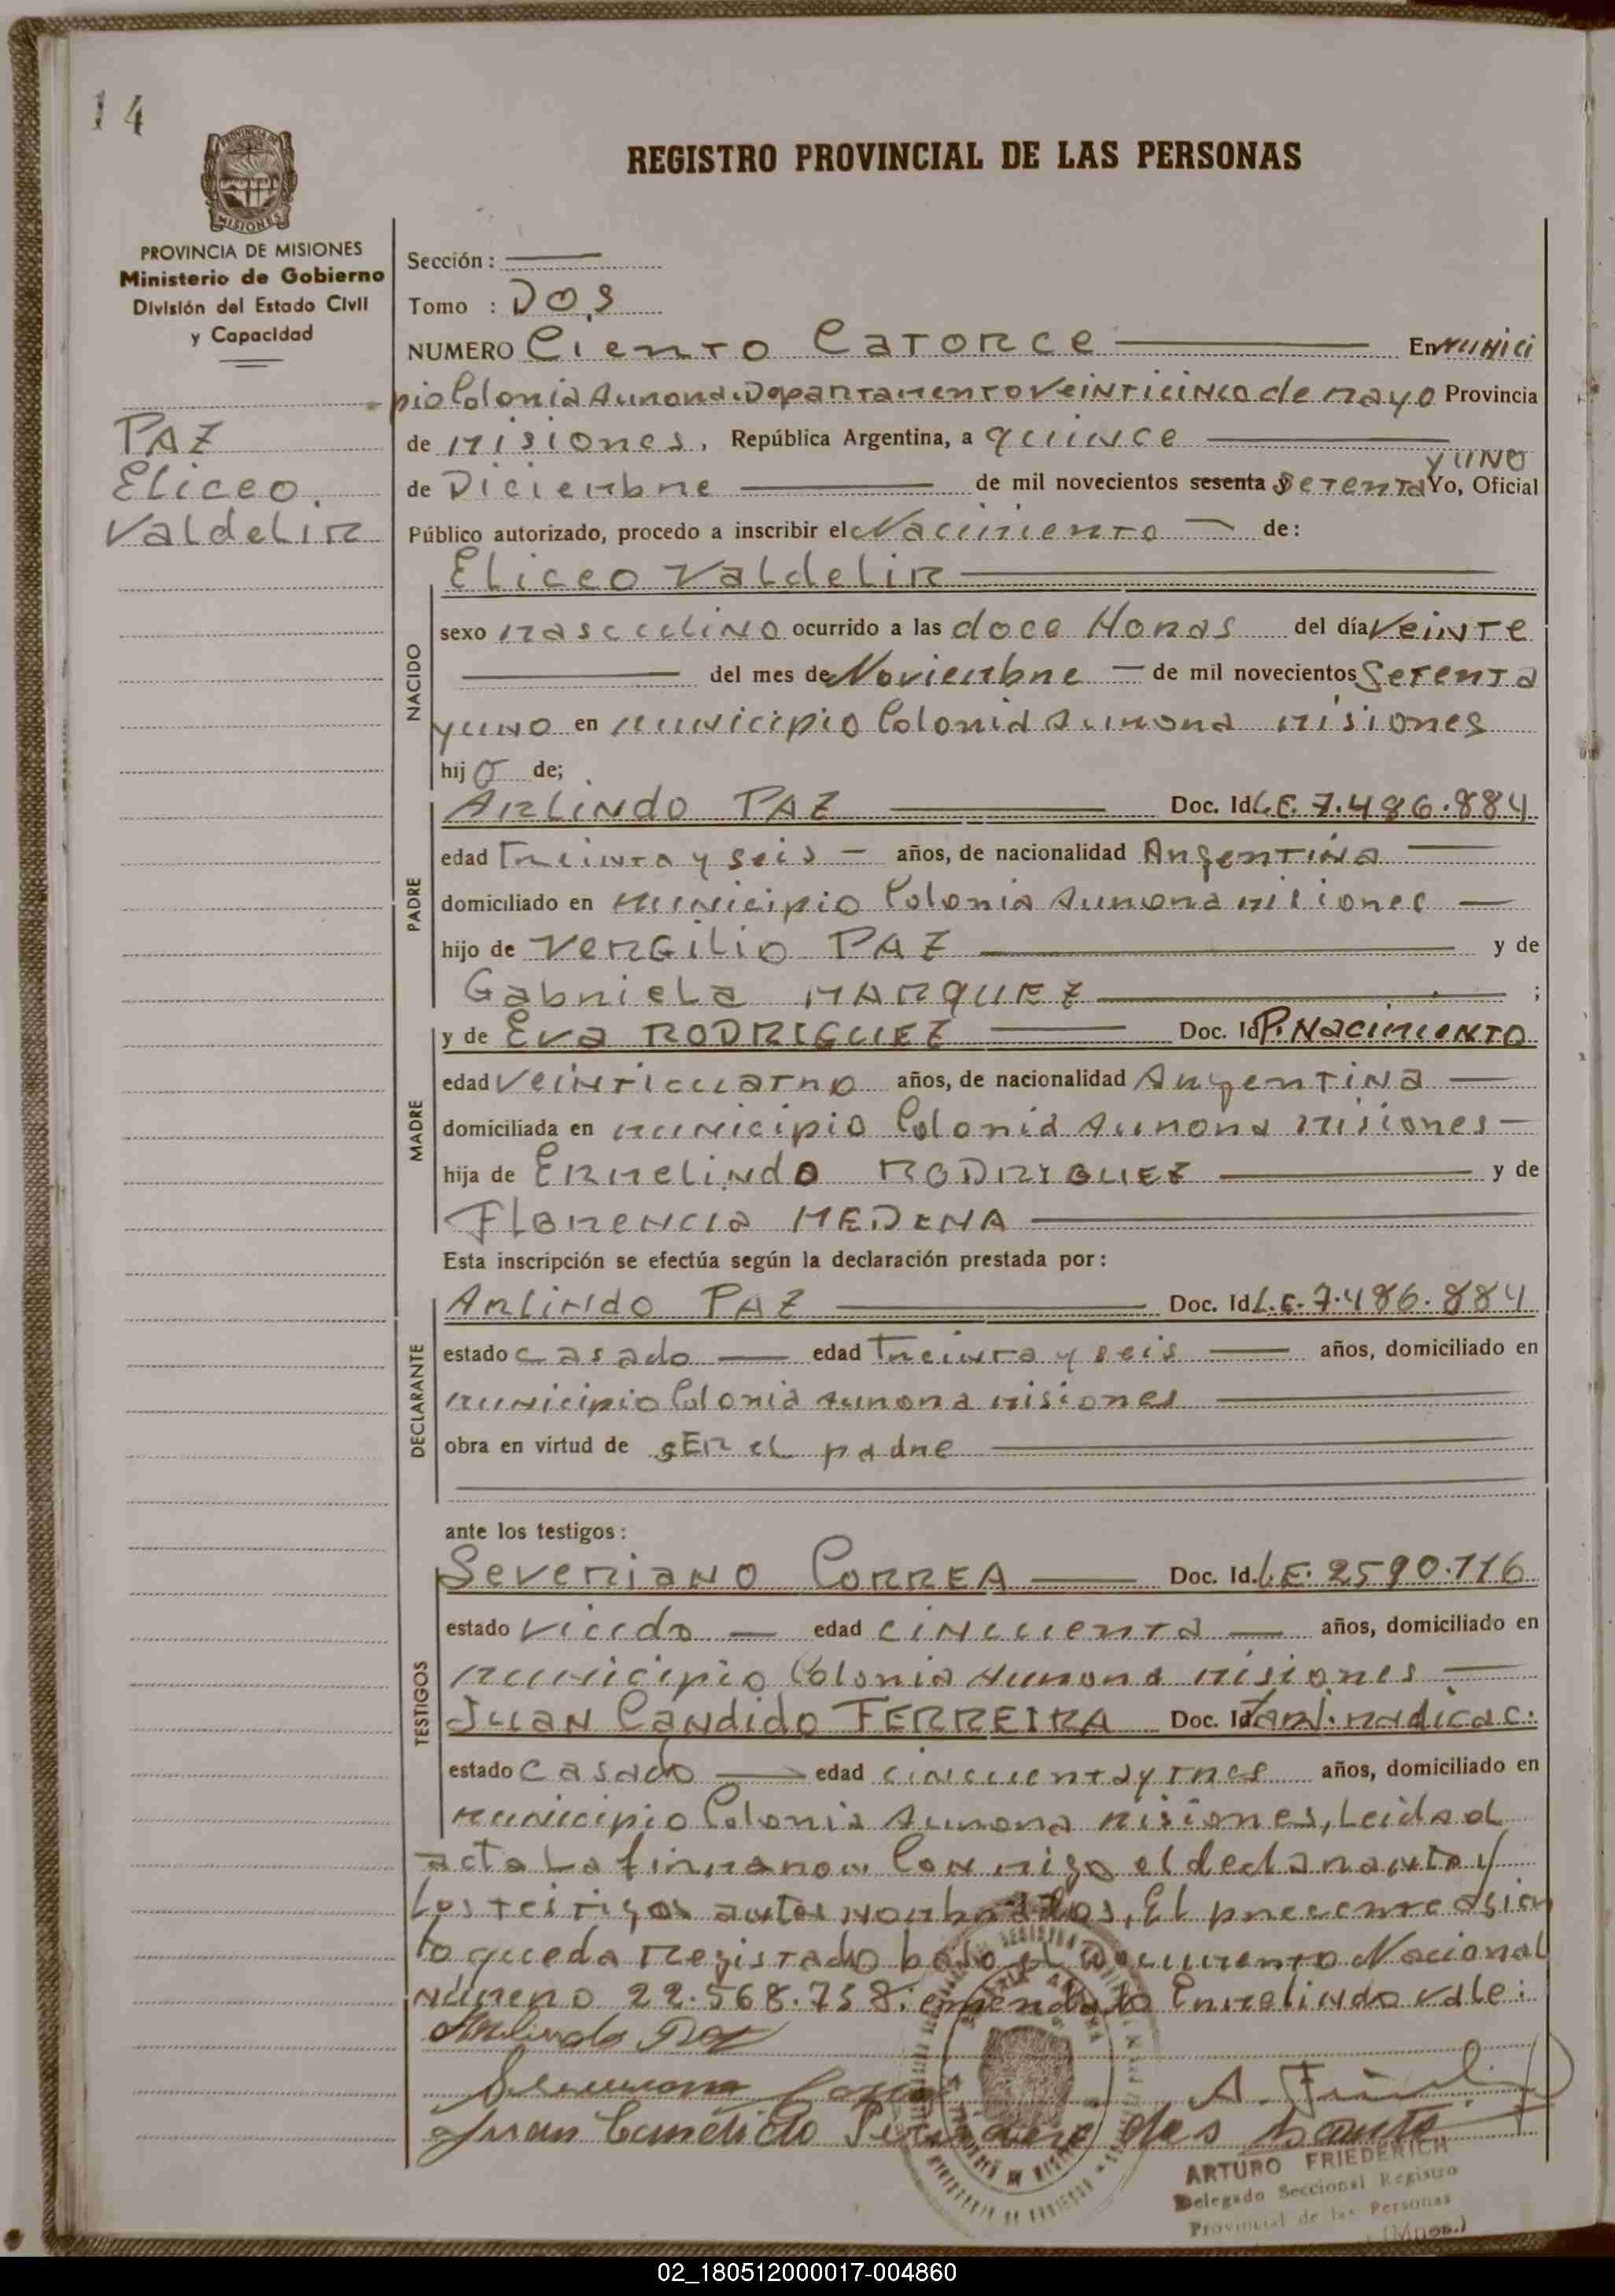 14
REGISTRO PROVINCIAL DE LAS PERSONAS
PROVINCIA DE MISIONES
MISIONES
PROVINCIA DE MISIONES
Ministerio de Gobierno
División del Estado Civil
y Capacidad
PAZ
Eliceo
Valdelir
Sección :
Tomo : Dos
NUMERO Ciento Catorce En Munici
pio Colonia Aurora Departamento Veinticinco de Mayo Provincia
de Misiones, República Argentina, a quince
y uno
de Diciembre de mil novecientos sesenta Setenta Yo, Oficial
Público autorizado, procedo a inscribir el Nacimiento de:
Eliceo Valdelir
NACIDO
sexo Masculino ocurrido a las doce Horas del día Veinte
del mes de Noviembre de mil novecientos Setenta
y uno en Municipio Colonia Aurora Misiones
hijo de;
PADRE
Arlindo PAZ Doc. Id L.E. 7.486.884
edad Treinta y seis años, de nacionalidad Argentina
domiciliado en Municipio Colonia Aurora Misiones
hijo de Vergilio PAZ y de
Gabriela MARQUEZ ;
MADRE
y de Eva RODRIGUEZ Doc. Id P. Nacimiento
edad Veinticuatro años, de nacionalidad Argentina
domiciliada en Municipio Colonia Aurora Misiones
hija de Ermelindo RODRIGUEZ y de
Florencia MEDINA
Esta inscripción se efectúa según la declaración prestada por :
DECLARANTE
Arlindo PAZ Doc. Id L.E. 7.486.884
estado casado edad Treinta y seis años, domiciliado en
Municipio Colonia Aurora Misiones
obra en virtud de sER el padre
ante los testigos :
TESTIGOS
Severiano CORREA Doc. Id. L.E. 2590.116
estado Viudo edad cincuenta años, domiciliado en
Municipio Colonia Aurora Misiones
Juan Candido FERREIRA Doc. Id radicac.
estado Casado edad cincuenta y tres años, domiciliado en
Municipio Colonia Aurora Misiones, Leida el
acta La firmaron Conmigo el declarante y
Los testigos antes nombrados, El presente asien
to queda Registrado bajo el Documento Nacional
Número 22.568.758. emendado Ermelindo vale:
Arlindo Paz
Juan Candido dos
ARTURO FRIEDERICH
Delegado Seccional Registro
Provincial de las Personas
(Mnes.)
02_180512000017-004860